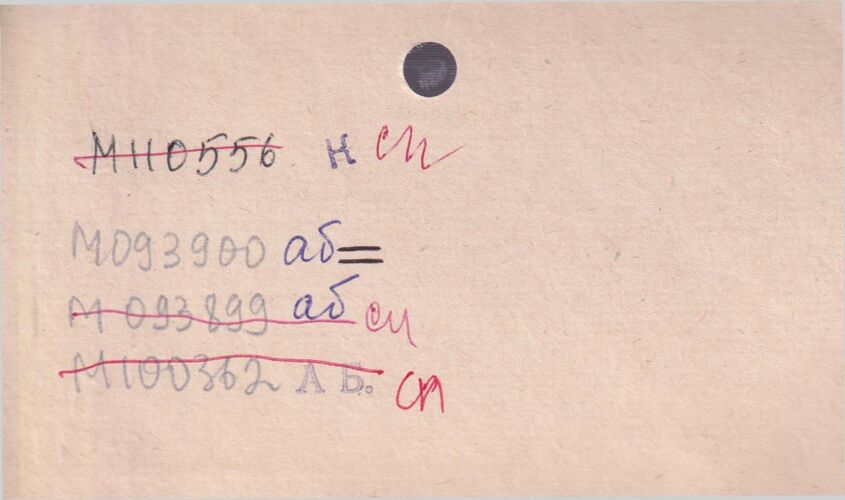 М110556 н сп
М093900 аб=
М093899 аб сп
М100362 А Б. сп